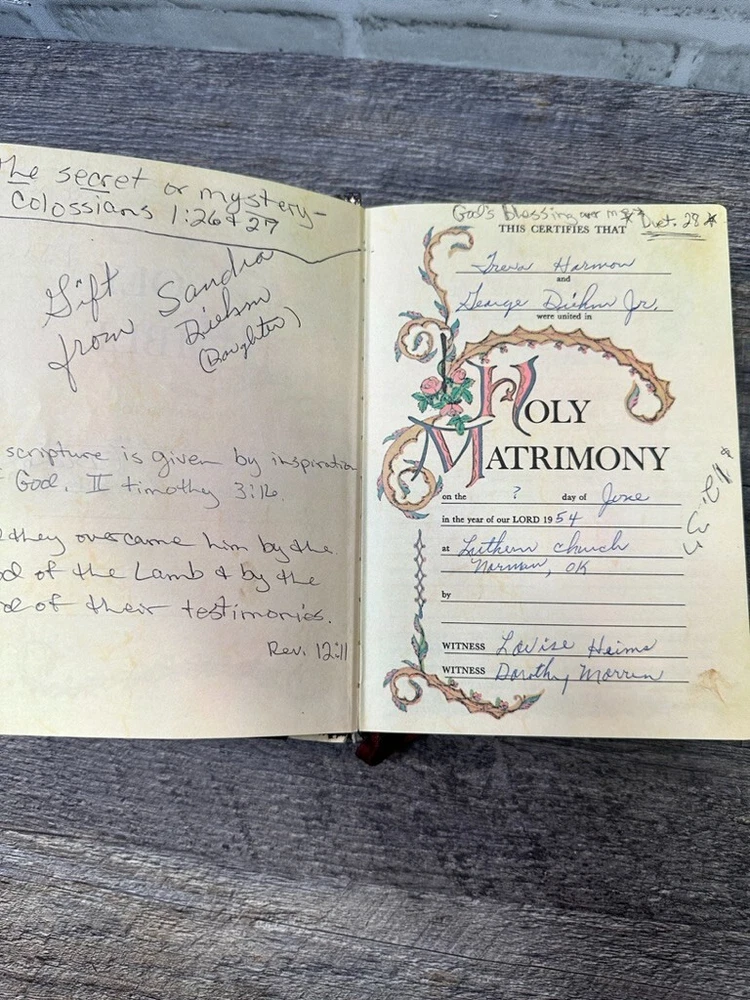 the secret or mystery-
Colossians 1:26 & 27
Gift
from Sandra
Diehm
(Daughter)
scripture is given by inspiration
God. II timothy 3:16.
they overcame him by the
of the Lamb & by the
of their testimonies.
Rev. 12:11
God's Blessing are my * Duet. 28 *
THIS CERTIFIES THAT
Treva Harmon
and
George Diehm Jr.
were united in
HOLY
MATRIMONY
on the ? day of June
in the year of our LORD 1954
at Luthern church
Norman, OK
by
WITNESS Louise Heims
WITNESS Dorothy Morren